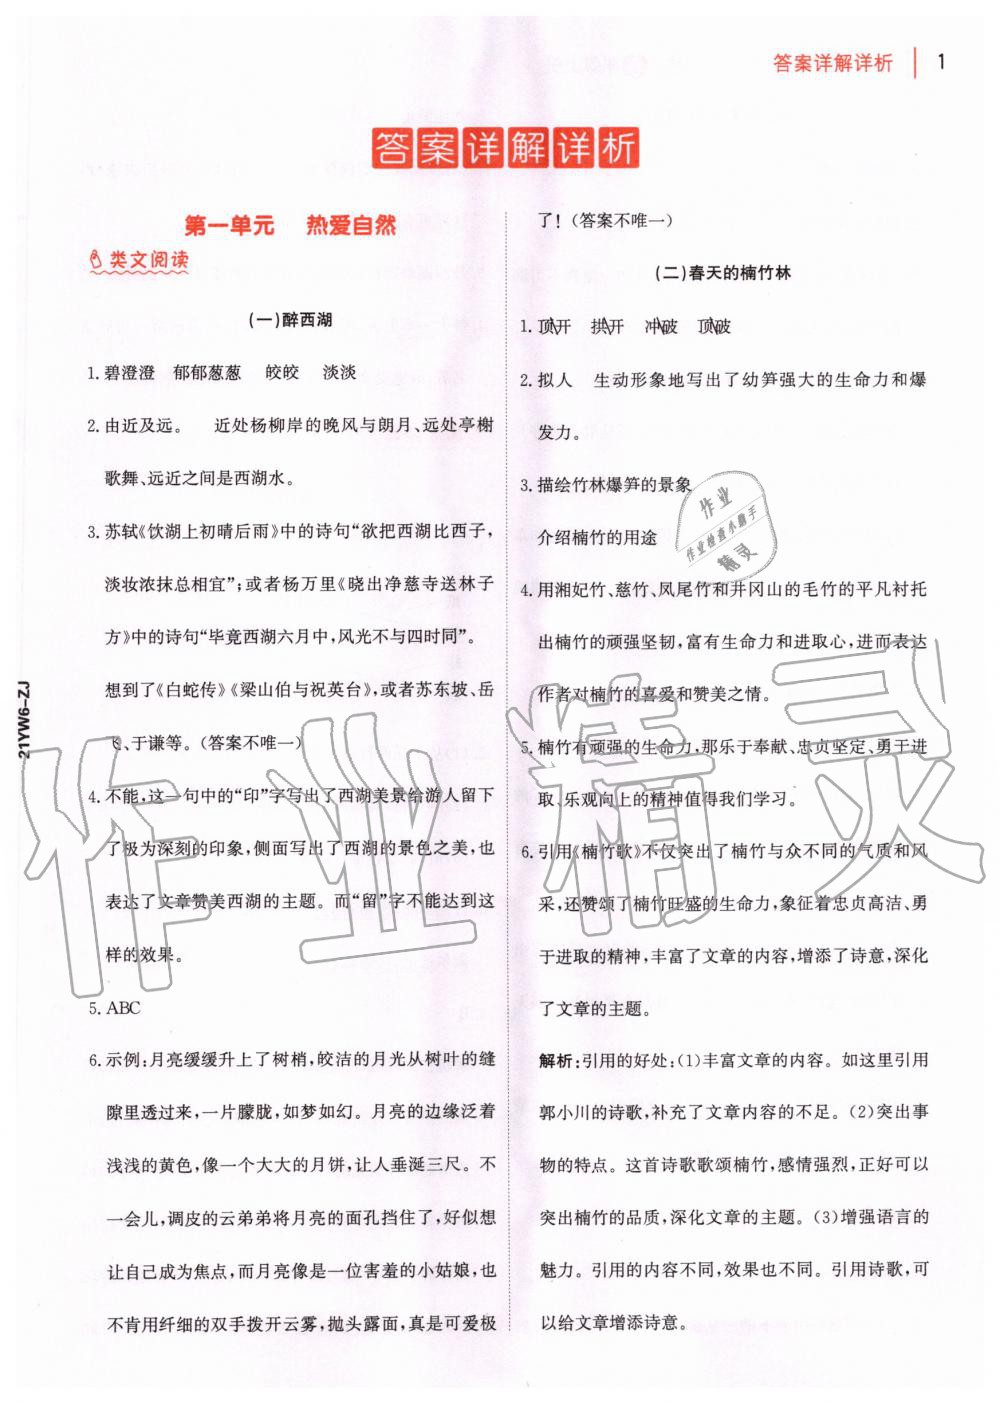 答案详解详析 1
答案详解详析
第一单元 热爱自然
类文阅读
(一)醉西湖
1. 碧澄澄 郁郁葱葱 皎皎 淡淡
2. 由近及远。 近处杨柳岸的晚风与朗月、远处亭榭
歌舞、远近之间是西湖水。
3. 苏轼《饮湖上初晴后雨》中的诗句“欲把西湖比西子,
淡妆浓抹总相宜”;或者杨万里《晓出净慈寺送林子
方》中的诗句“毕竟西湖六月中,风光不与四时同”。
想到了《白蛇传》《梁山伯与祝英台》,或者苏东坡、岳
飞、于谦等。(答案不唯一)
4. 不能,这一句中的“印”字写出了西湖美景给游人留下
了极为深刻的印象,侧面写出了西湖的景色之美,也
表达了文章赞美西湖的主题。而“留”字不能达到这
样的效果。
5. ABC
6. 示例:月亮缓缓升上了树梢,皎洁的月光从树叶的缝
隙里透过来,一片朦胧,如梦如幻。月亮的边缘泛着
浅浅的黄色,像一个大大的月饼,让人垂涎三尺。不
一会儿,调皮的云弟弟将月亮的面孔挡住了,好似想
让自己成为焦点,而月亮像是一位害羞的小姑娘,也
不肯用纤细的双手拨开云雾,抛头露面,真是可爱极
了!(答案不唯一)
(二)春天的楠竹林
1. 顶开 拱开 冲破 顶破
2. 拟人 生动形象地写出了幼笋强大的生命力和爆
发力。
3. 描绘竹林爆笋的景象
介绍楠竹的用途
4. 用湘妃竹、慈竹、凤尾竹和井冈山的毛竹的平凡衬托
出楠竹的顽强坚韧,富有生命力和进取心,进而表达
作者对楠竹的喜爱和赞美之情。
5. 楠竹有顽强的生命力,那乐于奉献、忠贞坚定、勇于进
取、乐观向上的精神值得我们学习。
6. 引用《楠竹歌》不仅突出了楠竹与众不同的气质和风
采,还赞颂了楠竹旺盛的生命力,象征着忠贞高洁、勇
于进取的精神,丰富了文章的内容,增添了诗意,深化
了文章的主题。
解析:引用的好处:(1)丰富文章的内容。如这里引用
郭小川的诗歌,补充了文章内容的不足。(2)突出事
物的特点。这首诗歌歌颂楠竹,感情强烈,正好可以
突出楠竹的品质,深化文章的主题。(3)增强语言的
魅力。引用的内容不同,效果也不同。引用诗歌,可
以给文章增添诗意。
21YW6-ZJ
作业
作业检查小助手
精灵
作业精灵